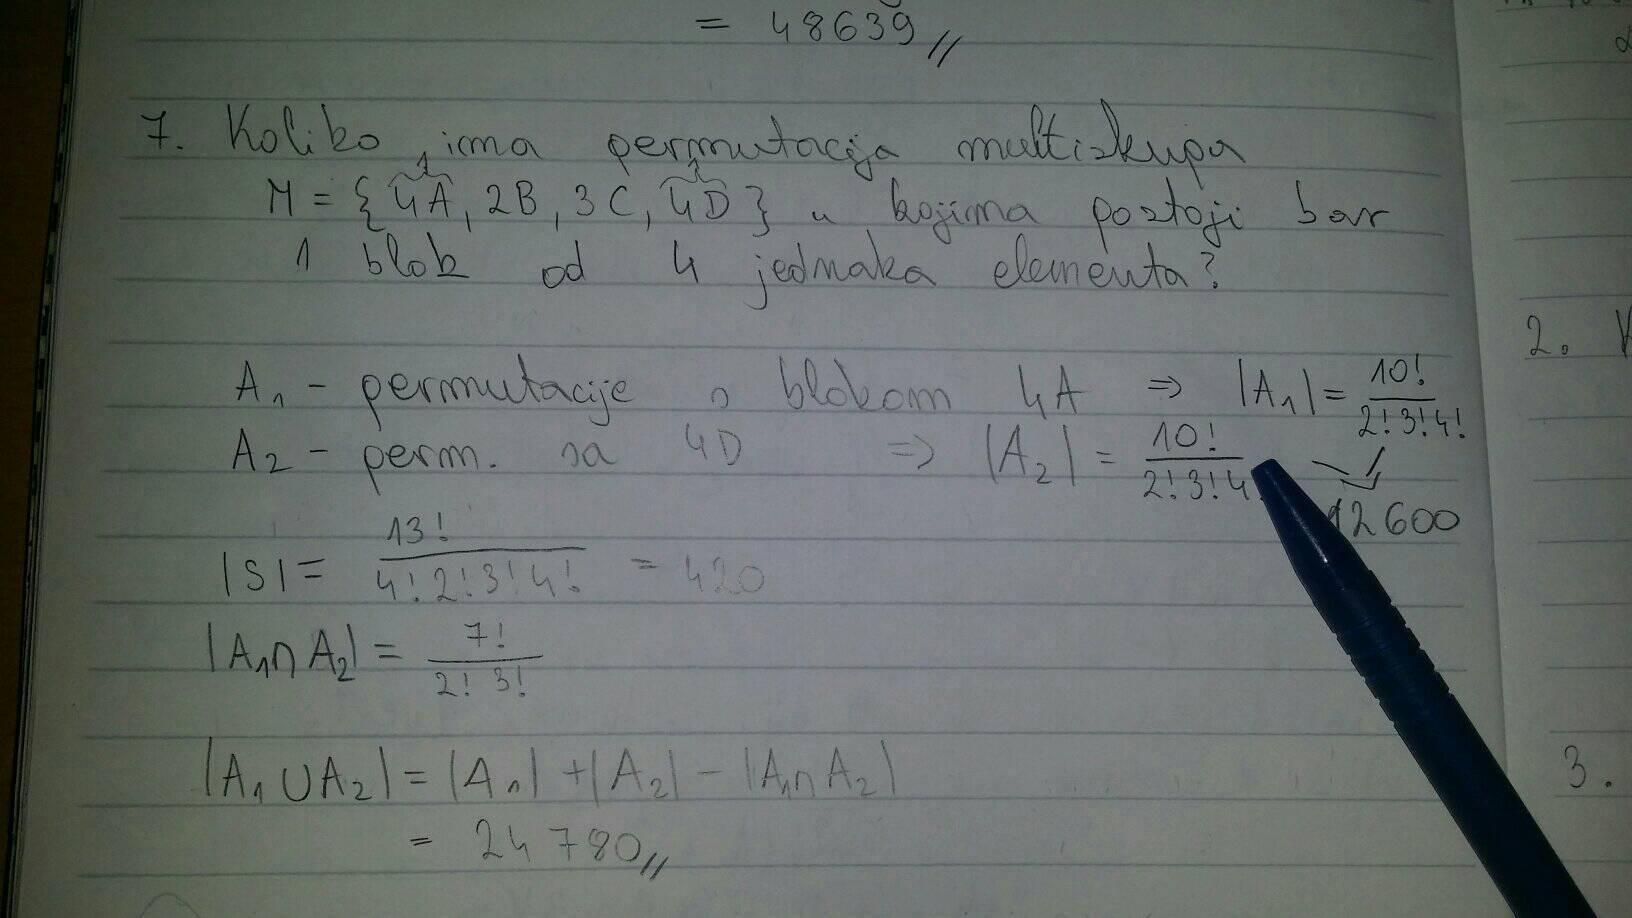 = 48639//
7. Koliko ima permutacija multiskupa
1 1
M = {4A, 2B, 3C, 4D} u kojima postoji bar
1 blok od 4 jednaka elementa?
A₁ - permutacije s blokom 4A ⇒ |A₁| = 10! / 2!3!4!
A₂ - perm. sa 4D ⇒ |A₂| = 10! / 2!3!4!
12600
|S| = 13! / 4!2!3!4! = 420
|A₁∩A₂| = 7! / 2! 3!
|A₁∪A₂| = |A₁| + |A₂| - |A₁∩A₂|
= 24780//
2.
3.